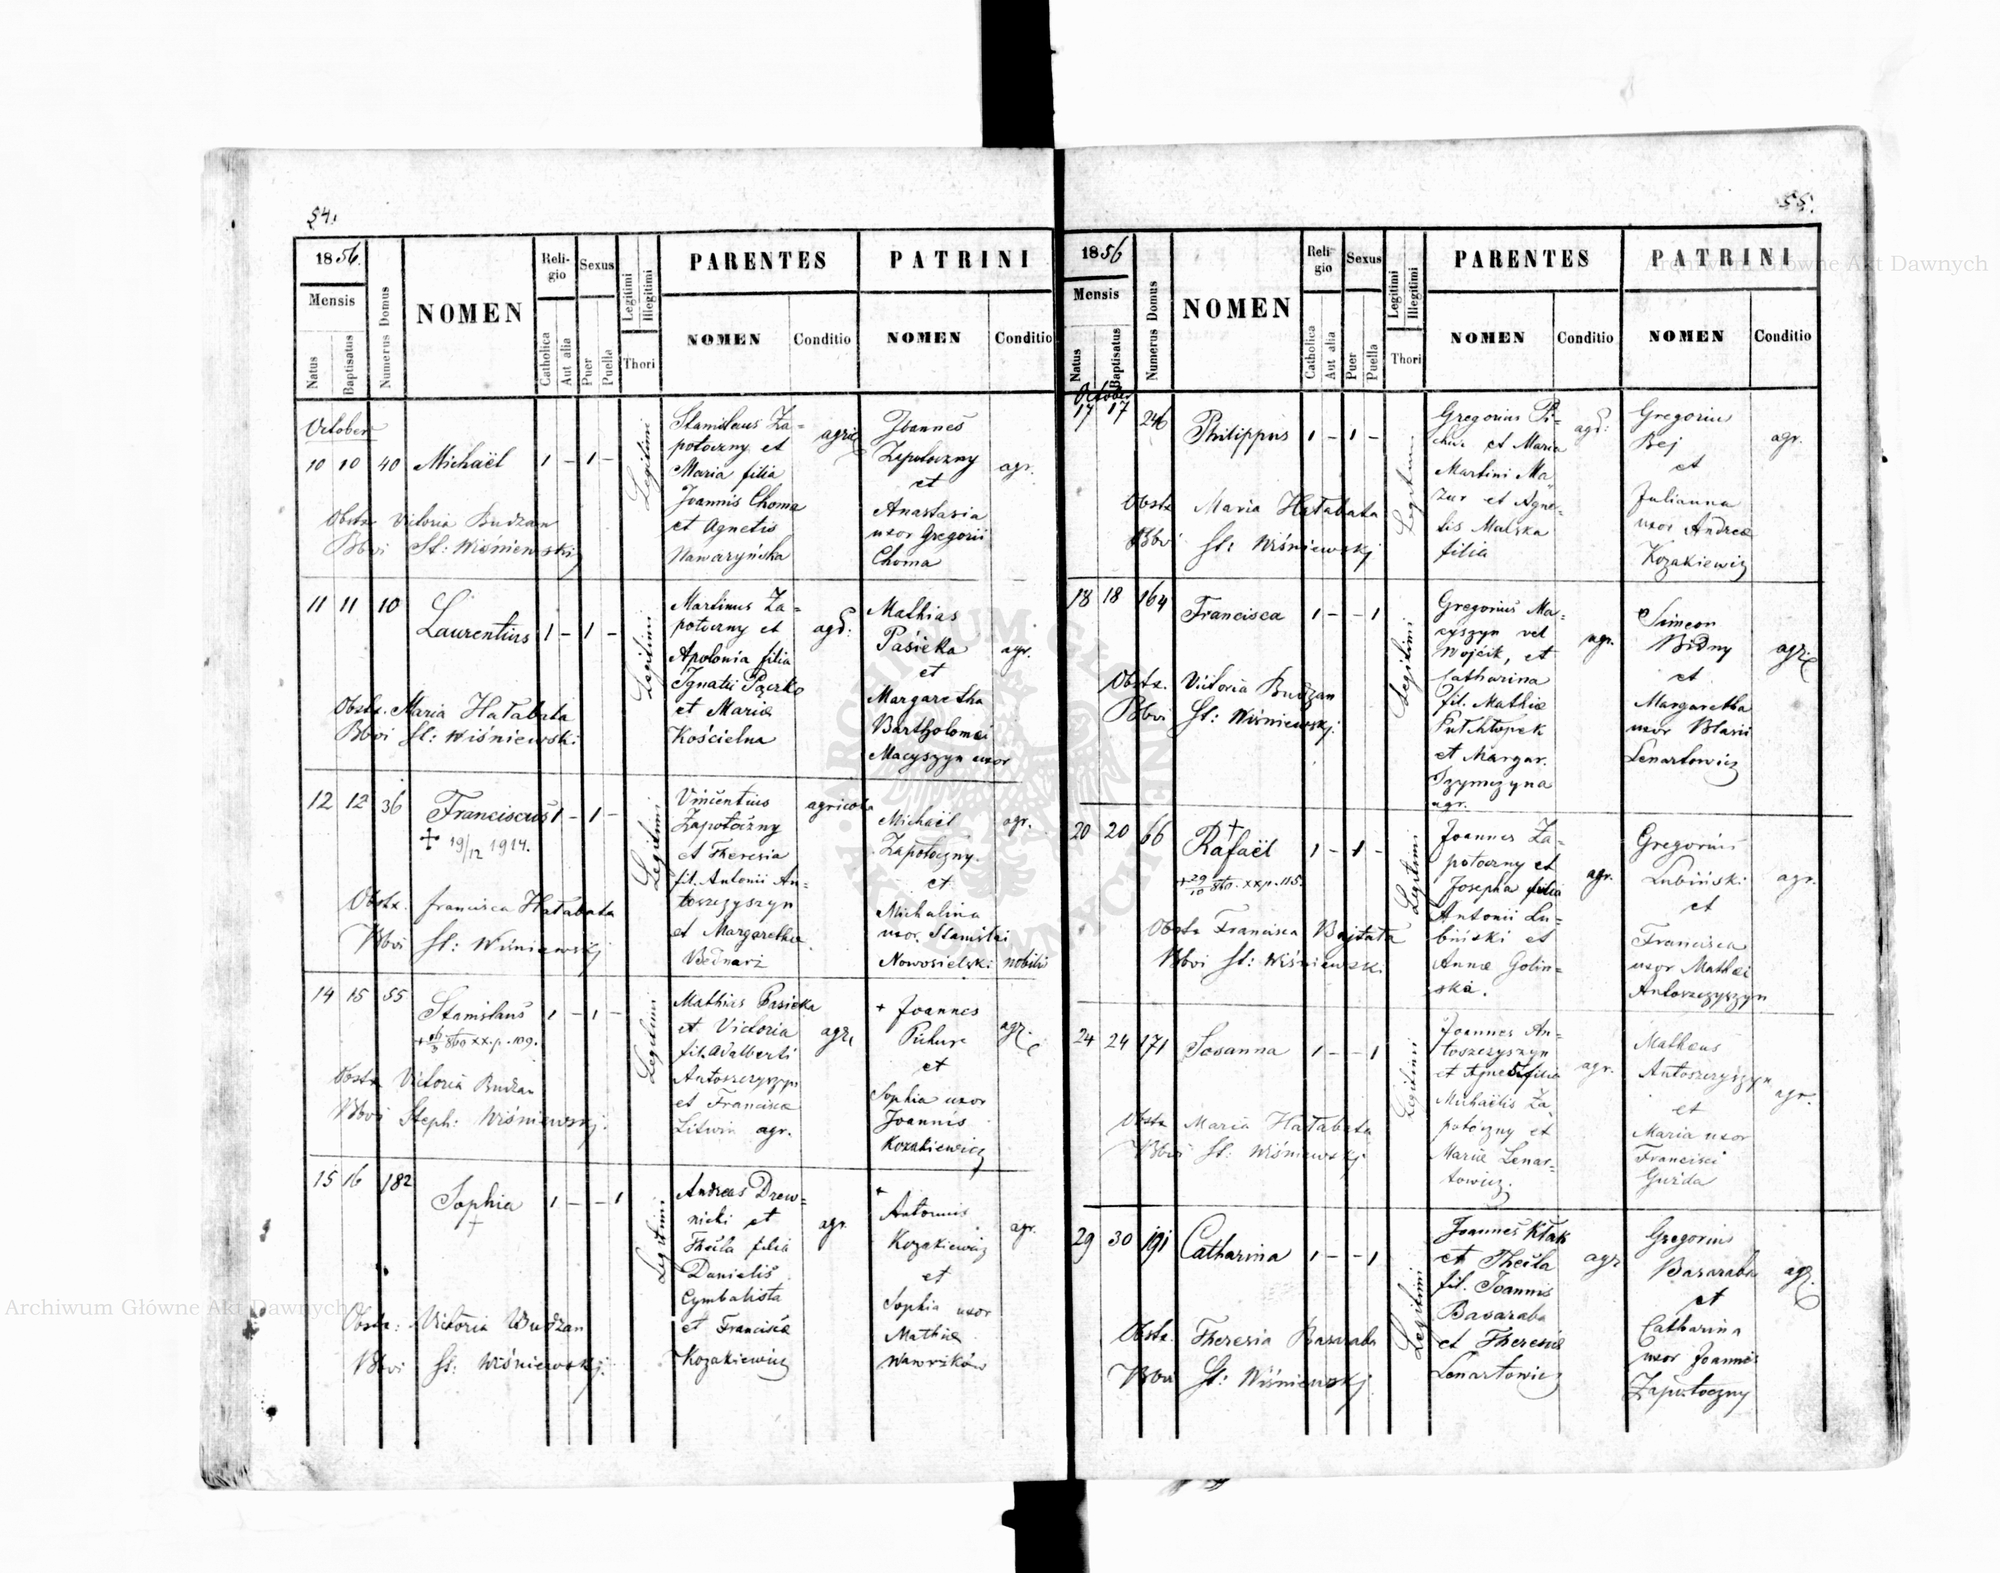 54.
1856.
Mensis
Natus
Baptisatus
Numerus Domus
NOMEN
Religio
Catholica
Aut alia
Sexus
Puer
Puella
Legitimi
Illegitimi
Thori
PARENTES
NOMEN
Conditio
PATRINI
NOMEN
Conditio
October
10 10 40 Michaël 1 – 1 –
Legitimi
Stanislaus Za=
potoczny et
Maria filia
Joannis Choma
et Agnetis
Nawaryńska
agric
Joannes
Zapotoczny
et
Anastasia
uxor Gregorii
Choma
agr.
Obstx Victoria Budzan
Bbvi St: Wiśniewskj
11 11 10 Laurentius 1 – 1 –
Legitimi
Martinus Za=
potoczny et
Apolonia filia
Ignatii Paczko
et Mariæ
Kościelna
agr:
Mathias
Pasieka
et
Margaretha
Bartholomæi
Macyszyn uxor
agr.
Obstx. Maria Hałabała
Bbvi St: Wiśniewski
12 12 36 Franciscus 1 – 1 –
+ 19/12 1914.
Legitimi
Vincentius
Zapotoczny
et Theresia
fil. Antonii An=
toszczyszyn
et Margaretha
Bednarz
agricola
Michaël
Zapotoczny.
et
Michalina
uxor. Stanislai
Nowosielski nobilis
agr.
Obstx. Francisca Hałabała
Bbvi St: Wiśniewskj
14 15 55 Stanislaus 1 – 1 –
860 xx.p. 109.
Legitimi
Mathias Pasieka
et Victoria
fil. Adalberti
Antoszczyszyn
et Francisca
Litwin agr.
agr.
+ Joannes
Pichur
et
Sophia uxor
Joannis
Kozakiewicz
agr.
Obstx Victoria Budzan
Bbvi Steph: Wiśniewskj.
15 16 182 Sophia 1 – – 1
+
Legitimi
Andreas Drew=
nicki et
Thecla filia
Danielis
Cymbalista
et Francisca
Kozakiewicz
agr.
+
Antonius
Kozakiewicz
et
Sophia uxor
Mathiæ
Wawrzków
agr.
Obstx: Victoria Budzan
Bbvi St: Wiśniewskj.
55.
1856
Mensis
Natus
Baptisatus
Numerus Domus
NOMEN
Religio
Catholica
Aut alia
Sexus
Puer
Puella
Legitimi
Illegitimi
Thori
PARENTES
NOMEN
Conditio
PATRINI
NOMEN
Conditio
October
17 17 246 Philippus 1 – 1 –
Legitimi
Gregorius Pi=
chur et Maria
Martini Ma=
zur et Agne=
tis Malska
filia
agr:
Gregorius
Bej
et
Julianna
uxor Andreæ
Kozakiewicz
agr.
Obstx Maria Hałabała
Bbvi St: Wiśniewskj
18 18 164 Francisca 1 – – 1
Legitimi
Gregorius Ma=
cyszyn vel
Wojcik, et
Catharina
fil. Mathiæ
Putchłopek
et Margar.
agr.
agr.
Simeon
Bidny
et
Margaretha
uxor Blasii
Lenartowicz
agr.
Obstx. Victoria Budzan
Bbvi St: Wiśniewskj.
20 20 66 Rafaël 1 – 1 –
+ 29/10 860. xx.p. 115.
Legitimi
Joannes Za=
potoczny et
Josepha filia
Antonii Lu=
biński et
Annæ Golin=
ska.
agr.
Gregorius
Lubiński
et
Francisca
uxor Mathæi
Antoszczyszyn
agr.
Obstx Francisca Bajtała
Bbvi St: Wiśniewski
24 24 171 Sosanna 1 – – 1
Legitimi
Joannes An=
toszczyszyn
et Agnes filia
Michaëlis Za=
potoczny et
Mariæ Lenar=
towicz.
agr.
Matheus
Antoszczyszyn
et
Maria uxor
Francisci
Guzda
agr.
Obstx Maria Hałabała
Bbvi St: Wiśniewskj
29 30 191 Catharina 1 – – 1
Legitimi
Joannes Kłak
et Thecla
fil. Joannis
Basaraba
et Theresiæ
Lenartowicz
agr
Gregorius
Basaraba
et
Catharina
uxor Joannis
Zapotoczny
agr.
Obstx. Theresia Basaraba
Bbvi St: Wiśniewskj
Archiwum Główne Akt Dawnych
Archiwum Główne Akt Dawnych
ARCHIWUM GŁÓWNE AKT DAWNYCH